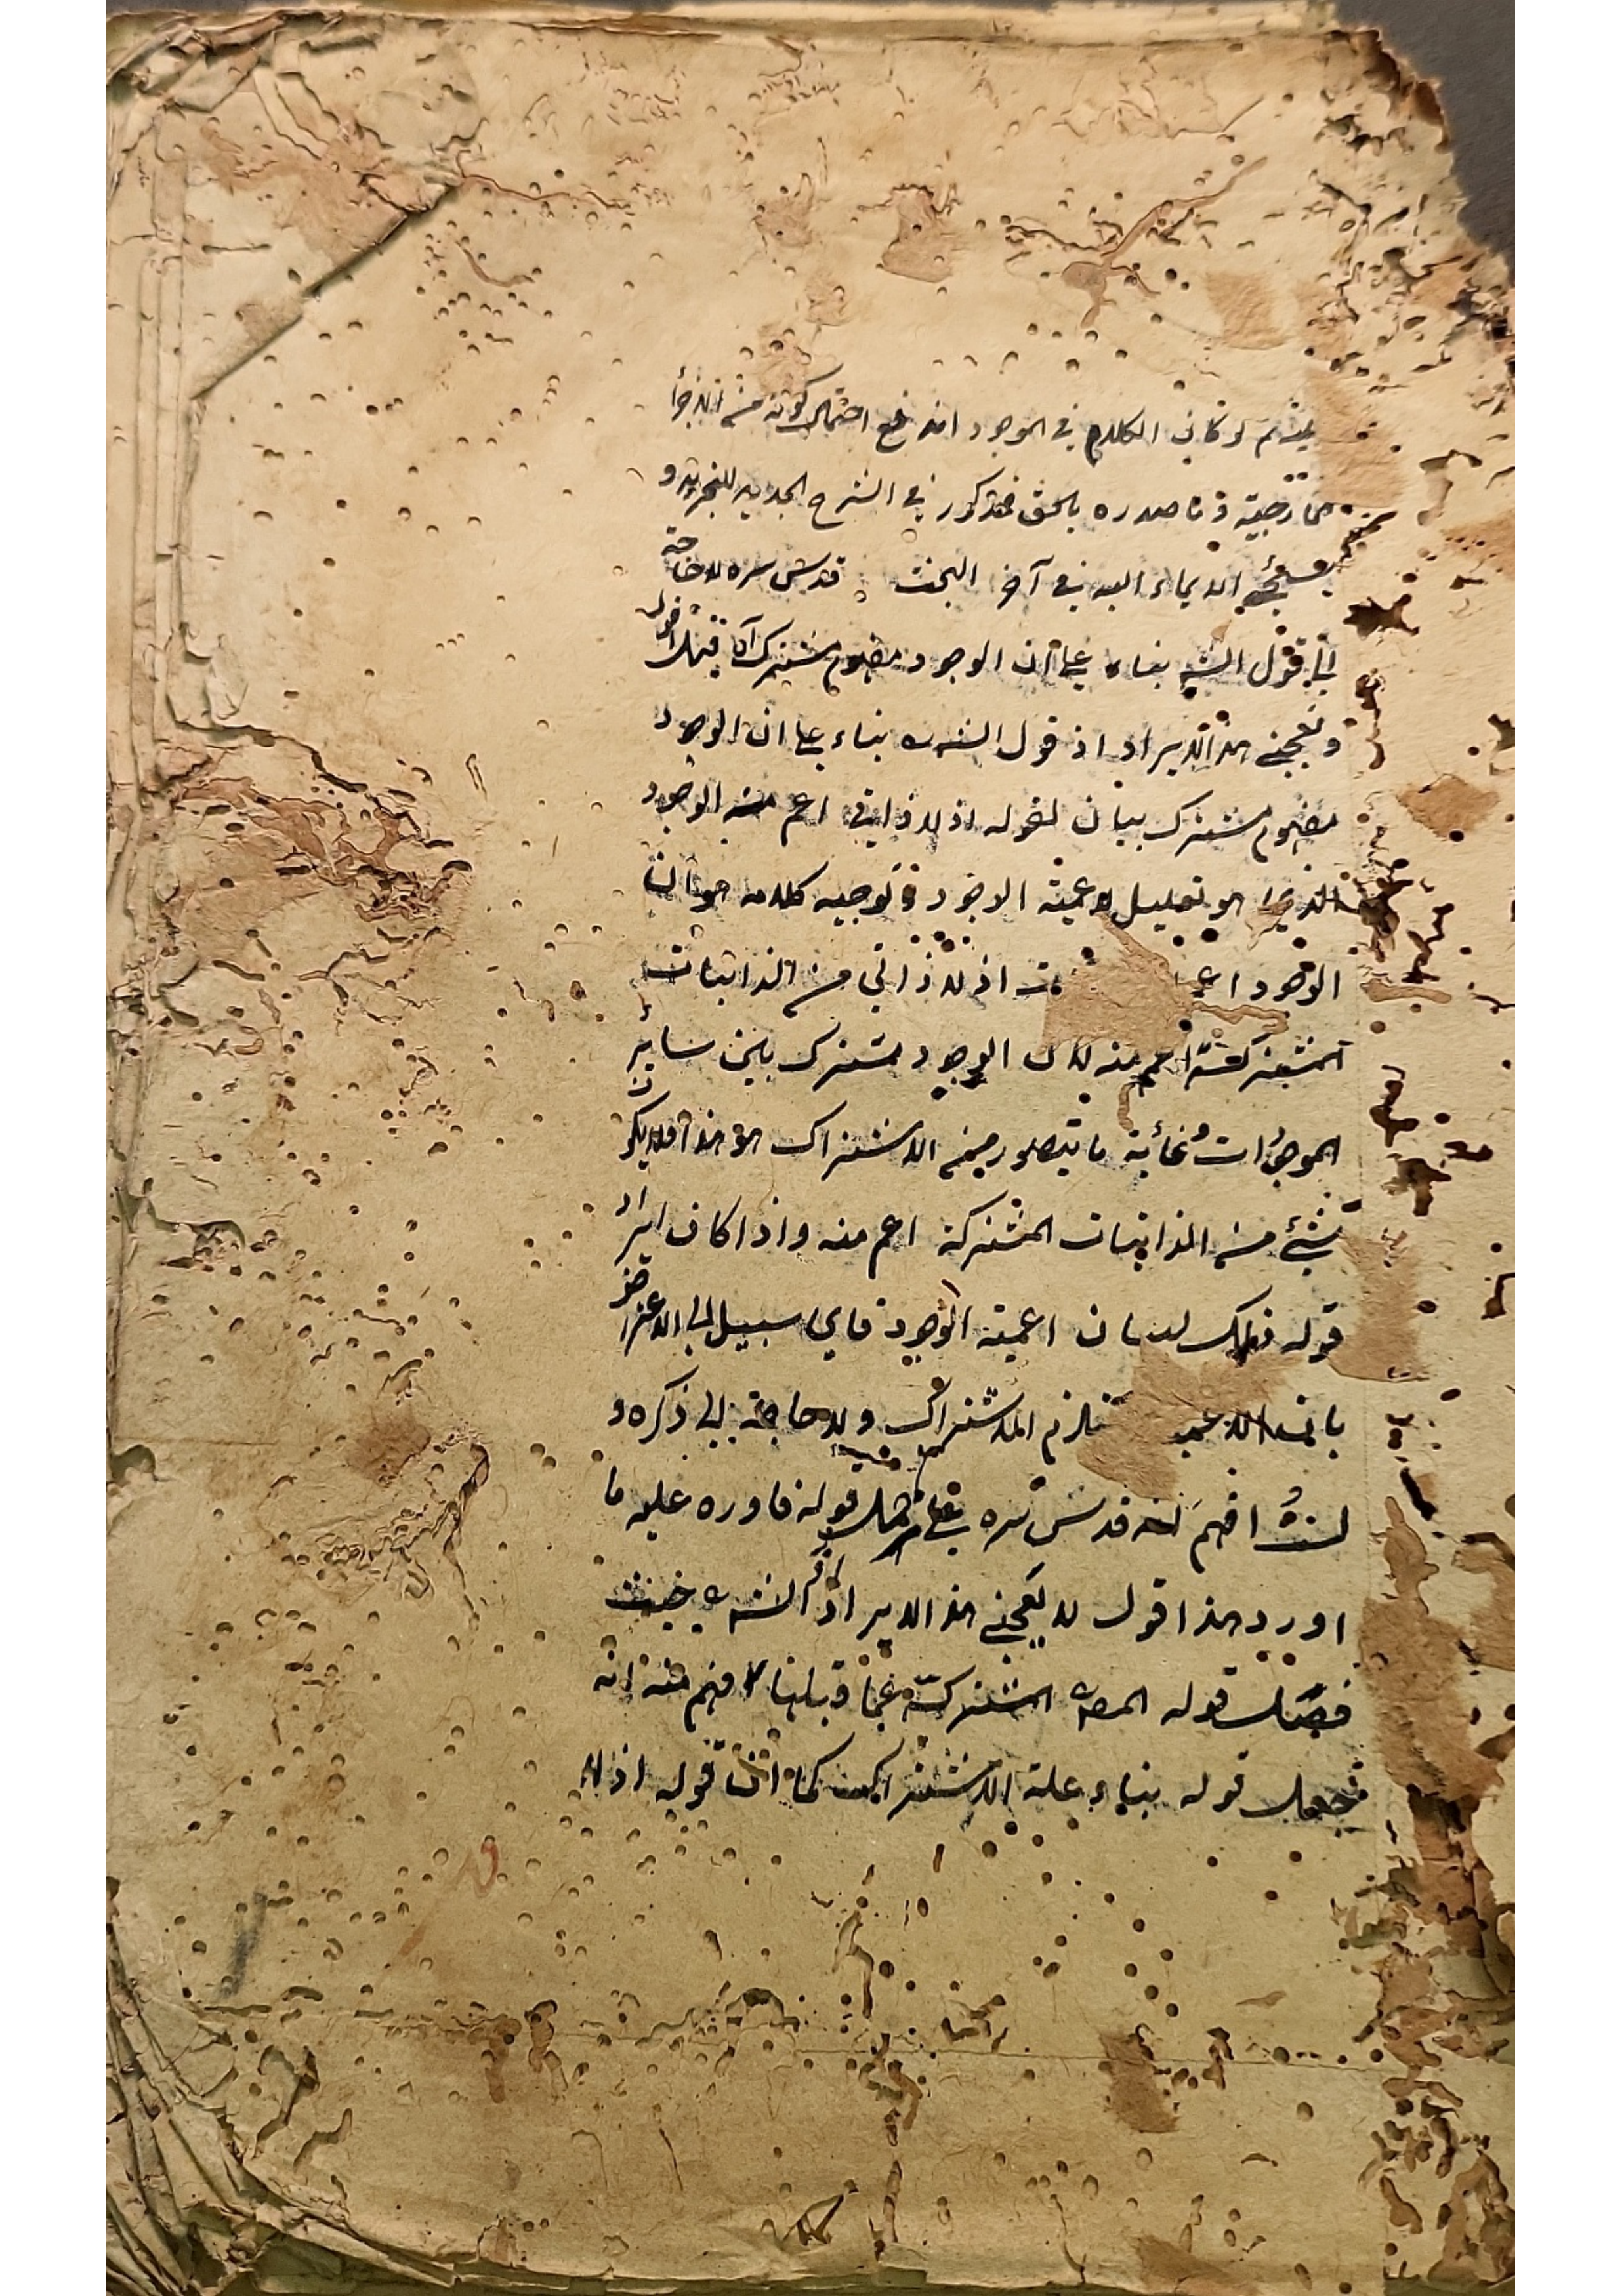 لو كان الكلام في الموجود اندفع احتمال كونه من الاجزأ
خارجية وما صدره بالحق فمذكور في الشرح الجديد للتجريد و
سيجئ الايماء اليه في آخر البحث قدس سره لا حاجة
الى قول الشه بناء على ان الوجود مفهوم مشترك آه قيل اقول
وتعجبنى هذا الايراد اذ قول الشه بناء على ان الوجود
مفهوم مشترك بيان لقوله اذ لا ذاتى اعم من الوجود
الذي هو تعليل لاعمية الوجود وتوجيه كلامه هو ان
الوجود اعم اذ لا ذاتي من الذاتيات
المشتركة اعم منه لان الوجود مشترك بين سائر
الموجودات وغاية ما يتصور من الاشتراك هو هذا فلا يكون
شئ من الذاتيات المشتركة اعم منه واذا كان ايراد
قوله ذلك لبيان اعمية الوجود فاي سبيل الى الاعتراض
بان الاعمية تلزم الاشتراك ولا حاجة الى ذكره و
لستُ افهم انه قدس سره قوله فاورد عليه ما
اورد هذا اقول لا يعجبنى هذا الايراد اذ الشه حيث
فصل قوله المص المشتركة عما قبلها فهم منه انه
جعل قوله بناء علة الاشتراك كما ان قوله اذ لا